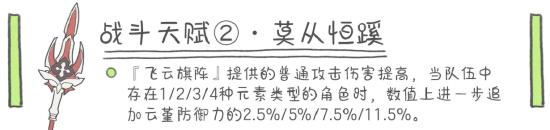 战斗天赋②·莫从恒蹊
『飞云旗阵』提供的普通攻击伤害提高，当队伍中
存在1/2/3/4种元素类型的角色时，数值上进一步追
加云堇防御力的2.5%/5%/7.5%/11.5%。